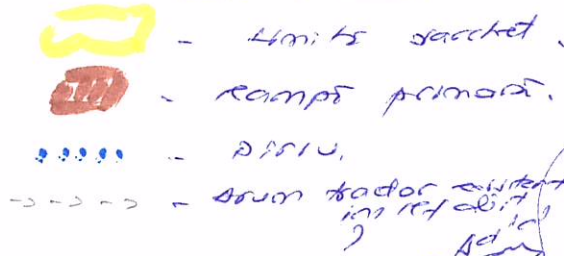 - Limită parchet.
- Rampă primară.
- Pîrîu.
- Drum tractor existent